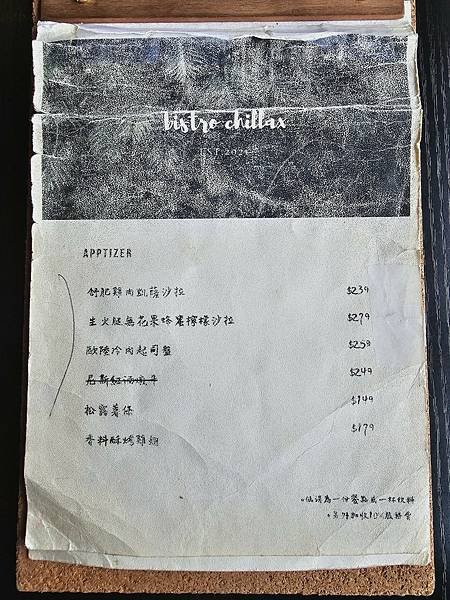 bistro chillax
EST 202
APPTIZER
舒肥雞肉凱薩沙拉 $239
生火腿無花果蜂蜜檸檬沙拉 $279
歐陸冷肉起司盤 $258
尼斯紅酒燉牛 $249
松露薯條 $149
香料酥烤雞翅 $179
低消為一份餐點或一杯飲料
另外加收10%服務費